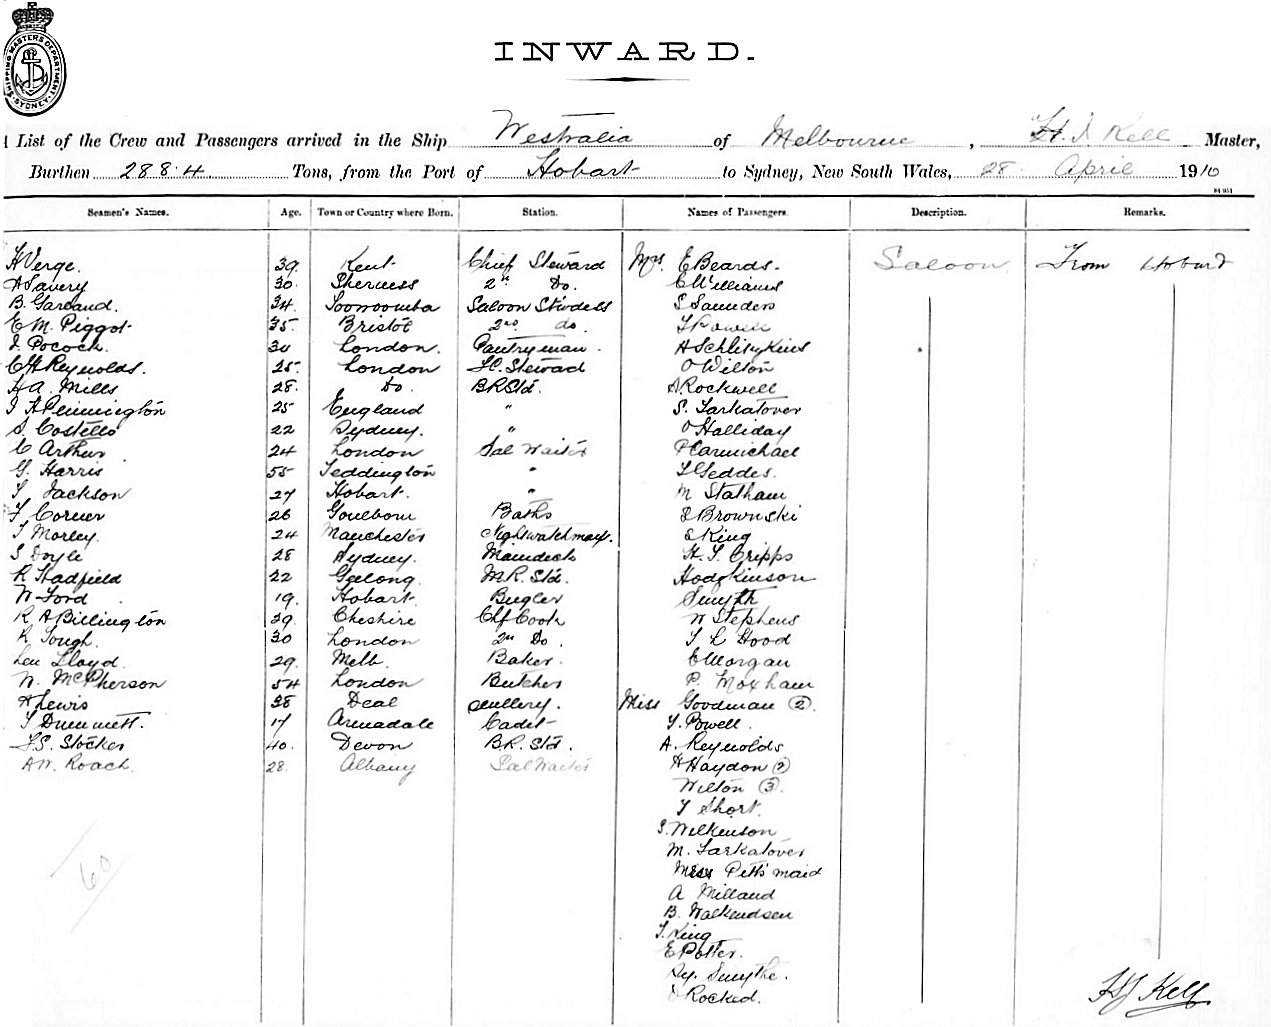 SHIPPING MASTERS DEPARTMENT SYDNEY
INWARD.
List of the Crew and Passengers arrived in the Ship Westralia of Melbourne, Kell Master,
Burthen 2884 Tons, from the Port of Hobart to Sydney, New South Wales, 28 April 1910
Seamen's Names. Age. Town or Country where Born. Station. Names of Passengers. Description. Remarks.
H Verge. 39 Kent Chief Steward Mrs. E Beards. Saloon From Hobart
H Savery 30 Sherness 2nd Do. C Williams
B. Garland. 34 Toowoomba Saloon Stwdess S Saunders
E M. Piggot 35 Bristol 2nd do Powell
J. Pocock. 30 London. Pantryman.
C H Reynolds. 25 London Steward O Wilton
H A. Mills 28. Do. B R Std. S Rockwell
J A Pennington 25 England " S. Tarkatover
S. Costello 22 Sydney. " O Halliday
C Arthur 24 London Sal Waiter P Carmichael
G. Harris 55 Teddington " Geddes.
T Jackson 27 Hobart. " M Statham
F Corner 26 Goulburn Baths Brownski
T Morley. 24 Manchester Nightwatchman. King
S Doyle 28 Sydney. Maindeck H. T. Cripps
R Hadfield 22 Geelong. M R. Std. Hodgkinson
W Ford 19. Hobart. Bugler Smyth
R A Billington 39. Cheshire Chf Cook W Stephens
R Tough. 30 London 2nd Do. T L Hood
Len Lloyd. 29. Melb. Baker. E Morgan
W. McPherson 54 London Butcher P. Moxham
H Lewis 38 Deal Scullery. Miss Goodman (2).
T Dummett. 17 Armadale Cadet Y. Powell.
F. S. Stocker 40. Devon B.R. Std. A. Reynolds
A W. Roach. 28. Albany Sal Waiter H Haydon (2)
Wilton (3).
T Short.
S. Wilkinson
M. Tarkatover
Miss Pett's maid
A Milland
B. Walkendsen
60
T. King
E Potter.
Sy. Smythe.
O Rocked.
Kell